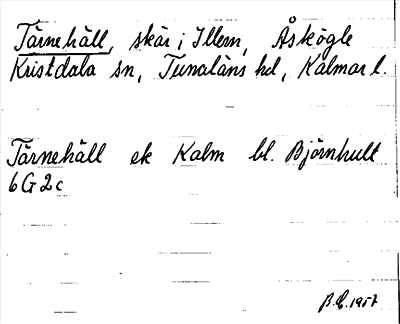 Tärnehäll, skär i Illern, Åskögle
Kristdala sn, Tunaläns hd, Kalmar l.
Tärnehäll ek Kalm bl. Björnhult
6G2c
1957